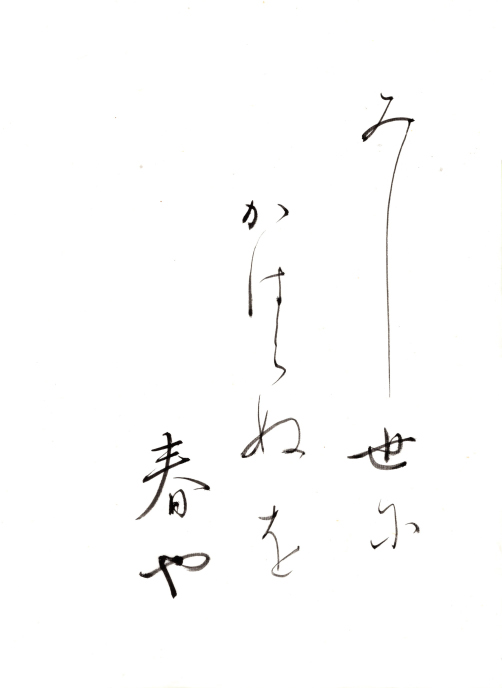 みし世に
かはらぬを
春や